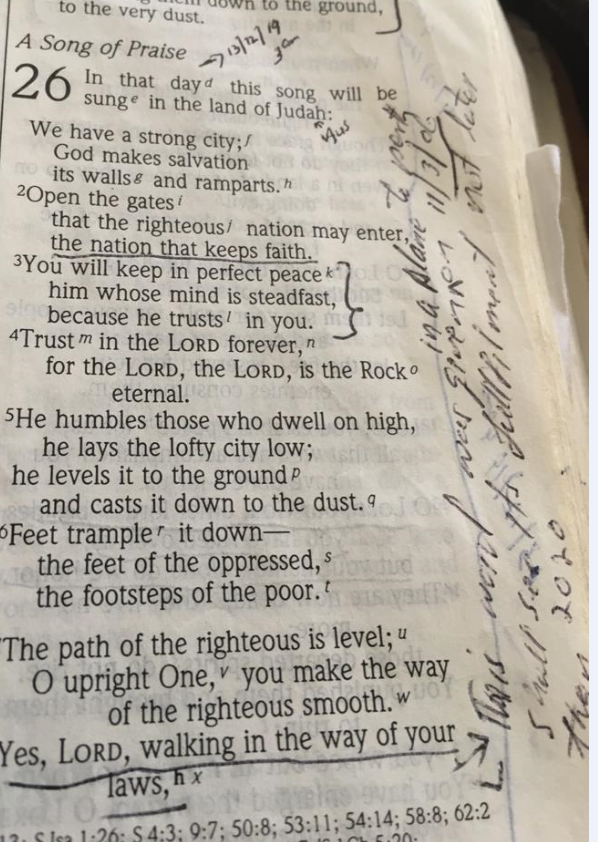 down to the ground,
to the very dust.
A Song of Praise
13/12/19
26 In that day d this song will be
sung e in the land of Judah:
We have a strong city; f
God makes salvation
its walls g and ramparts. h
2Open the gates i
that the righteous j nation may enter,
the nation that keeps faith.
3You will keep in perfect peace k
him whose mind is steadfast,
because he trusts l in you.
4Trust m in the LORD forever, n
for the LORD, the LORD, is the Rock o
eternal.
5He humbles those who dwell on high,
he lays the lofty city low;
he levels it to the ground p
and casts it down to the dust. q
6Feet trample r it down—
the feet of the oppressed, s
the footsteps of the poor. t
The path of the righteous is level; u
O upright One, v you make the way
of the righteous smooth. w
Yes, LORD, walking in the way of your
laws, h x
S Isa 1:26; S 4:3; 9:7; 50:8; 53:11; 54:14; 58:8; 62:2
in a plane to
This word was given on 11/3/
shall see its fulfilment not later
than 2020